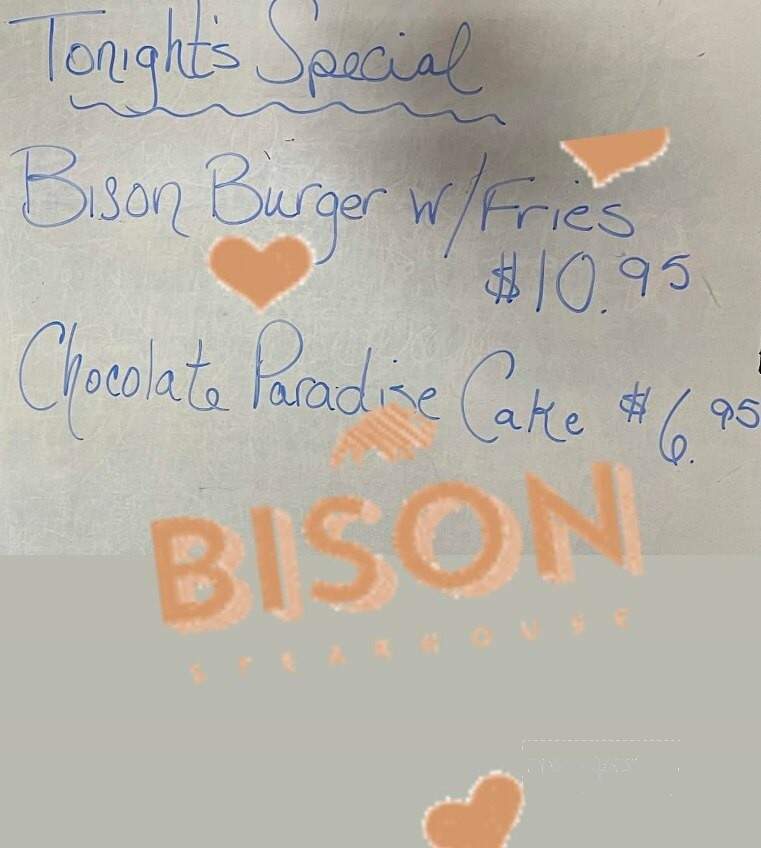 Tonight's Special
Bison Burger w/Fries
$10.95
Chocolate Paradise Cake $6.95
BISON
STEAKHOUSE